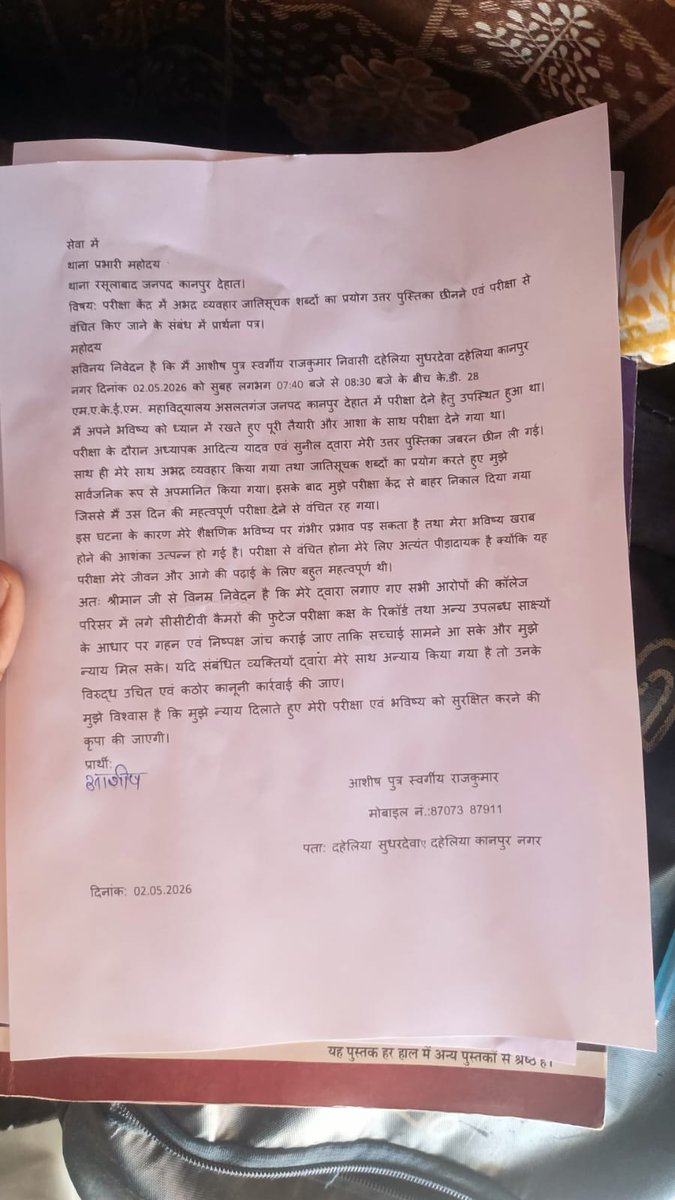 सेवा में
थाना प्रभारी महोदय
थाना रसूलाबाद जनपद कानपुर देहात।
विषय: परीक्षा केंद्र में अभद्र व्यवहार जातिसूचक शब्दों का प्रयोग उत्तर पुस्तिका छीनने एवं परीक्षा से
वंचित किए जाने के संबंध में प्रार्थना पत्र।
महोदय
सविनय निवेदन है कि मैं आशीष पुत्र स्वर्गीय राजकुमार निवासी दहेलिया सुधरदेवा दहेलिया कानपुर
नगर दिनांक 02.05.2026 को सुबह लगभग 07:40 बजे से 08:30 बजे के बीच के.डी. 28
एम.ए.के.ई.एम. महाविद्यालय असलतगंज जनपद कानपुर देहात में परीक्षा देने हेतु उपस्थित हुआ था।
मैं अपने भविष्य को ध्यान में रखते हुए पूरी तैयारी और आशा के साथ परीक्षा देने गया था।
परीक्षा के दौरान अध्यापक आदित्य यादव एवं सुनील द्वारा मेरी उत्तर पुस्तिका जबरन छीन ली गई।
साथ ही मेरे साथ अभद्र व्यवहार किया गया तथा जातिसूचक शब्दों का प्रयोग करते हुए मुझे
सार्वजनिक रूप से अपमानित किया गया। इसके बाद मुझे परीक्षा केंद्र से बाहर निकाल दिया गया
जिससे मैं उस दिन की महत्वपूर्ण परीक्षा देने से वंचित रह गया।
इस घटना के कारण मेरे शैक्षणिक भविष्य पर गंभीर प्रभाव पड़ सकता है तथा मेरा भविष्य खराब
होने की आशंका उत्पन्न हो गई है। परीक्षा से वंचित होना मेरे लिए अत्यंत पीड़ादायक है क्योंकि यह
परीक्षा मेरे जीवन और आगे की पढ़ाई के लिए बहुत महत्वपूर्ण थी।
अतः श्रीमान जी से विनम्र निवेदन है कि मेरे द्वारा लगाए गए सभी आरोपों की कॉलेज
परिसर में लगे सीसीटीवी कैमरों की फुटेज परीक्षा कक्ष के रिकॉर्ड तथा अन्य उपलब्ध साक्ष्यों
के आधार पर गहन एवं निष्पक्ष जांच कराई जाए ताकि सच्चाई सामने आ सके और मुझे
न्याय मिल सके। यदि संबंधित व्यक्तियों द्वारा मेरे साथ अन्याय किया गया है तो उनके
विरुद्ध उचित एवं कठोर कानूनी कार्रवाई की जाए।
मुझे विश्वास है कि मुझे न्याय दिलाते हुए मेरी परीक्षा एवं भविष्य को सुरक्षित करने की
कृपा की जाएगी।
प्रार्थी:
आशीष
आशीष पुत्र स्वर्गीय राजकुमार
मोबाइल नं.:87073 87911
पता: दहेलिया सुधरदेवाए दहेलिया कानपुर नगर
दिनांक: 02.05.2026
यह पुस्तक हर हाल में अन्य पुस्तकों से श्रेष्ठ है।